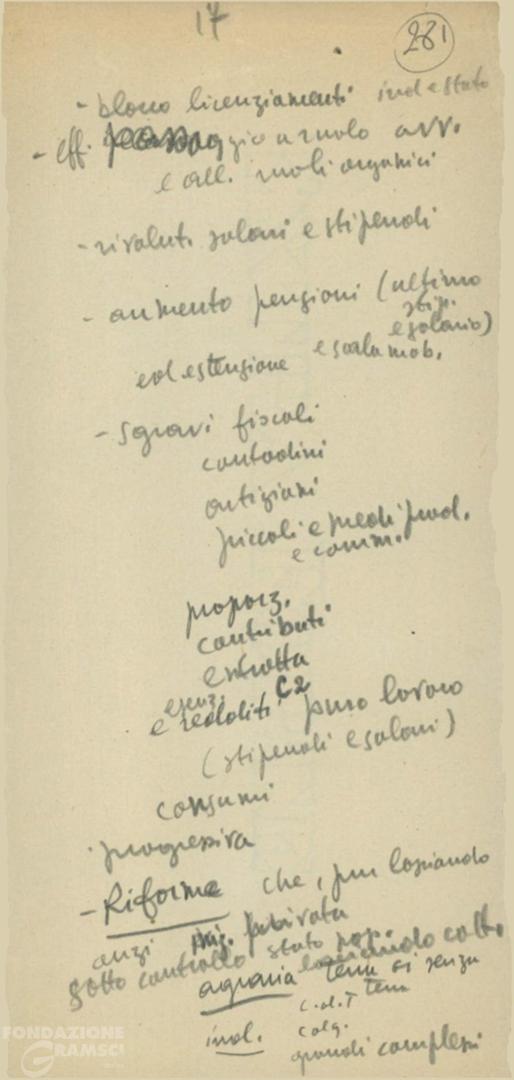 17
281
- blocco licenziamenti ind e stato
- eff. passaggio a ruolo avv.
e all. ruoli organici
- rivalut. salari e stipendi
- aumento pensioni (ultimo
stip.
e salario)
ed estensione e scala mob.
- sgravi fiscali
contadini
artigiani
piccoli e medi prod.
e comm.
proporz.
contributi
esenz.
e redditi C2 puro lavoro
(stipendi e salari)
consumi
progressiva
- Riforme che, pur lasciando
anzi privata
sotto controllo stato
agraria terra ai senza
terra
c.d.T
ind.
grandi complessi
FONDAZIONE
GRAMSCI